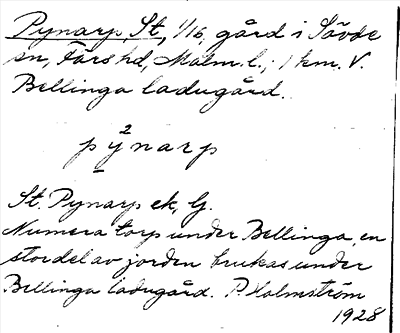 Pynarp, St., 1/16, gård i Sövde
sn, Färs hd, Malm. l.; 1 km. V.
Bellinga ladugård.
pỳ²narp
St. Pynarp ek, G.
Numera torp under Bellinga, en
stor del av jorden brukas under
Bellinga ladugård. P. Holmström
1928